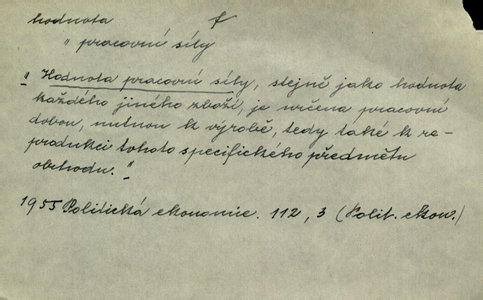 hodnota
" pracovní síly
" Hodnota pracovní síly, stejně jako hodnota
každého jiného zboží, je určena pracovní
dobou, nutnou k výrobě, tedy také k re-
produkci tohoto specifického předmětu
obchodu. "
1955 Politická ekonomie. 112, 3 (Polit. ekon.)